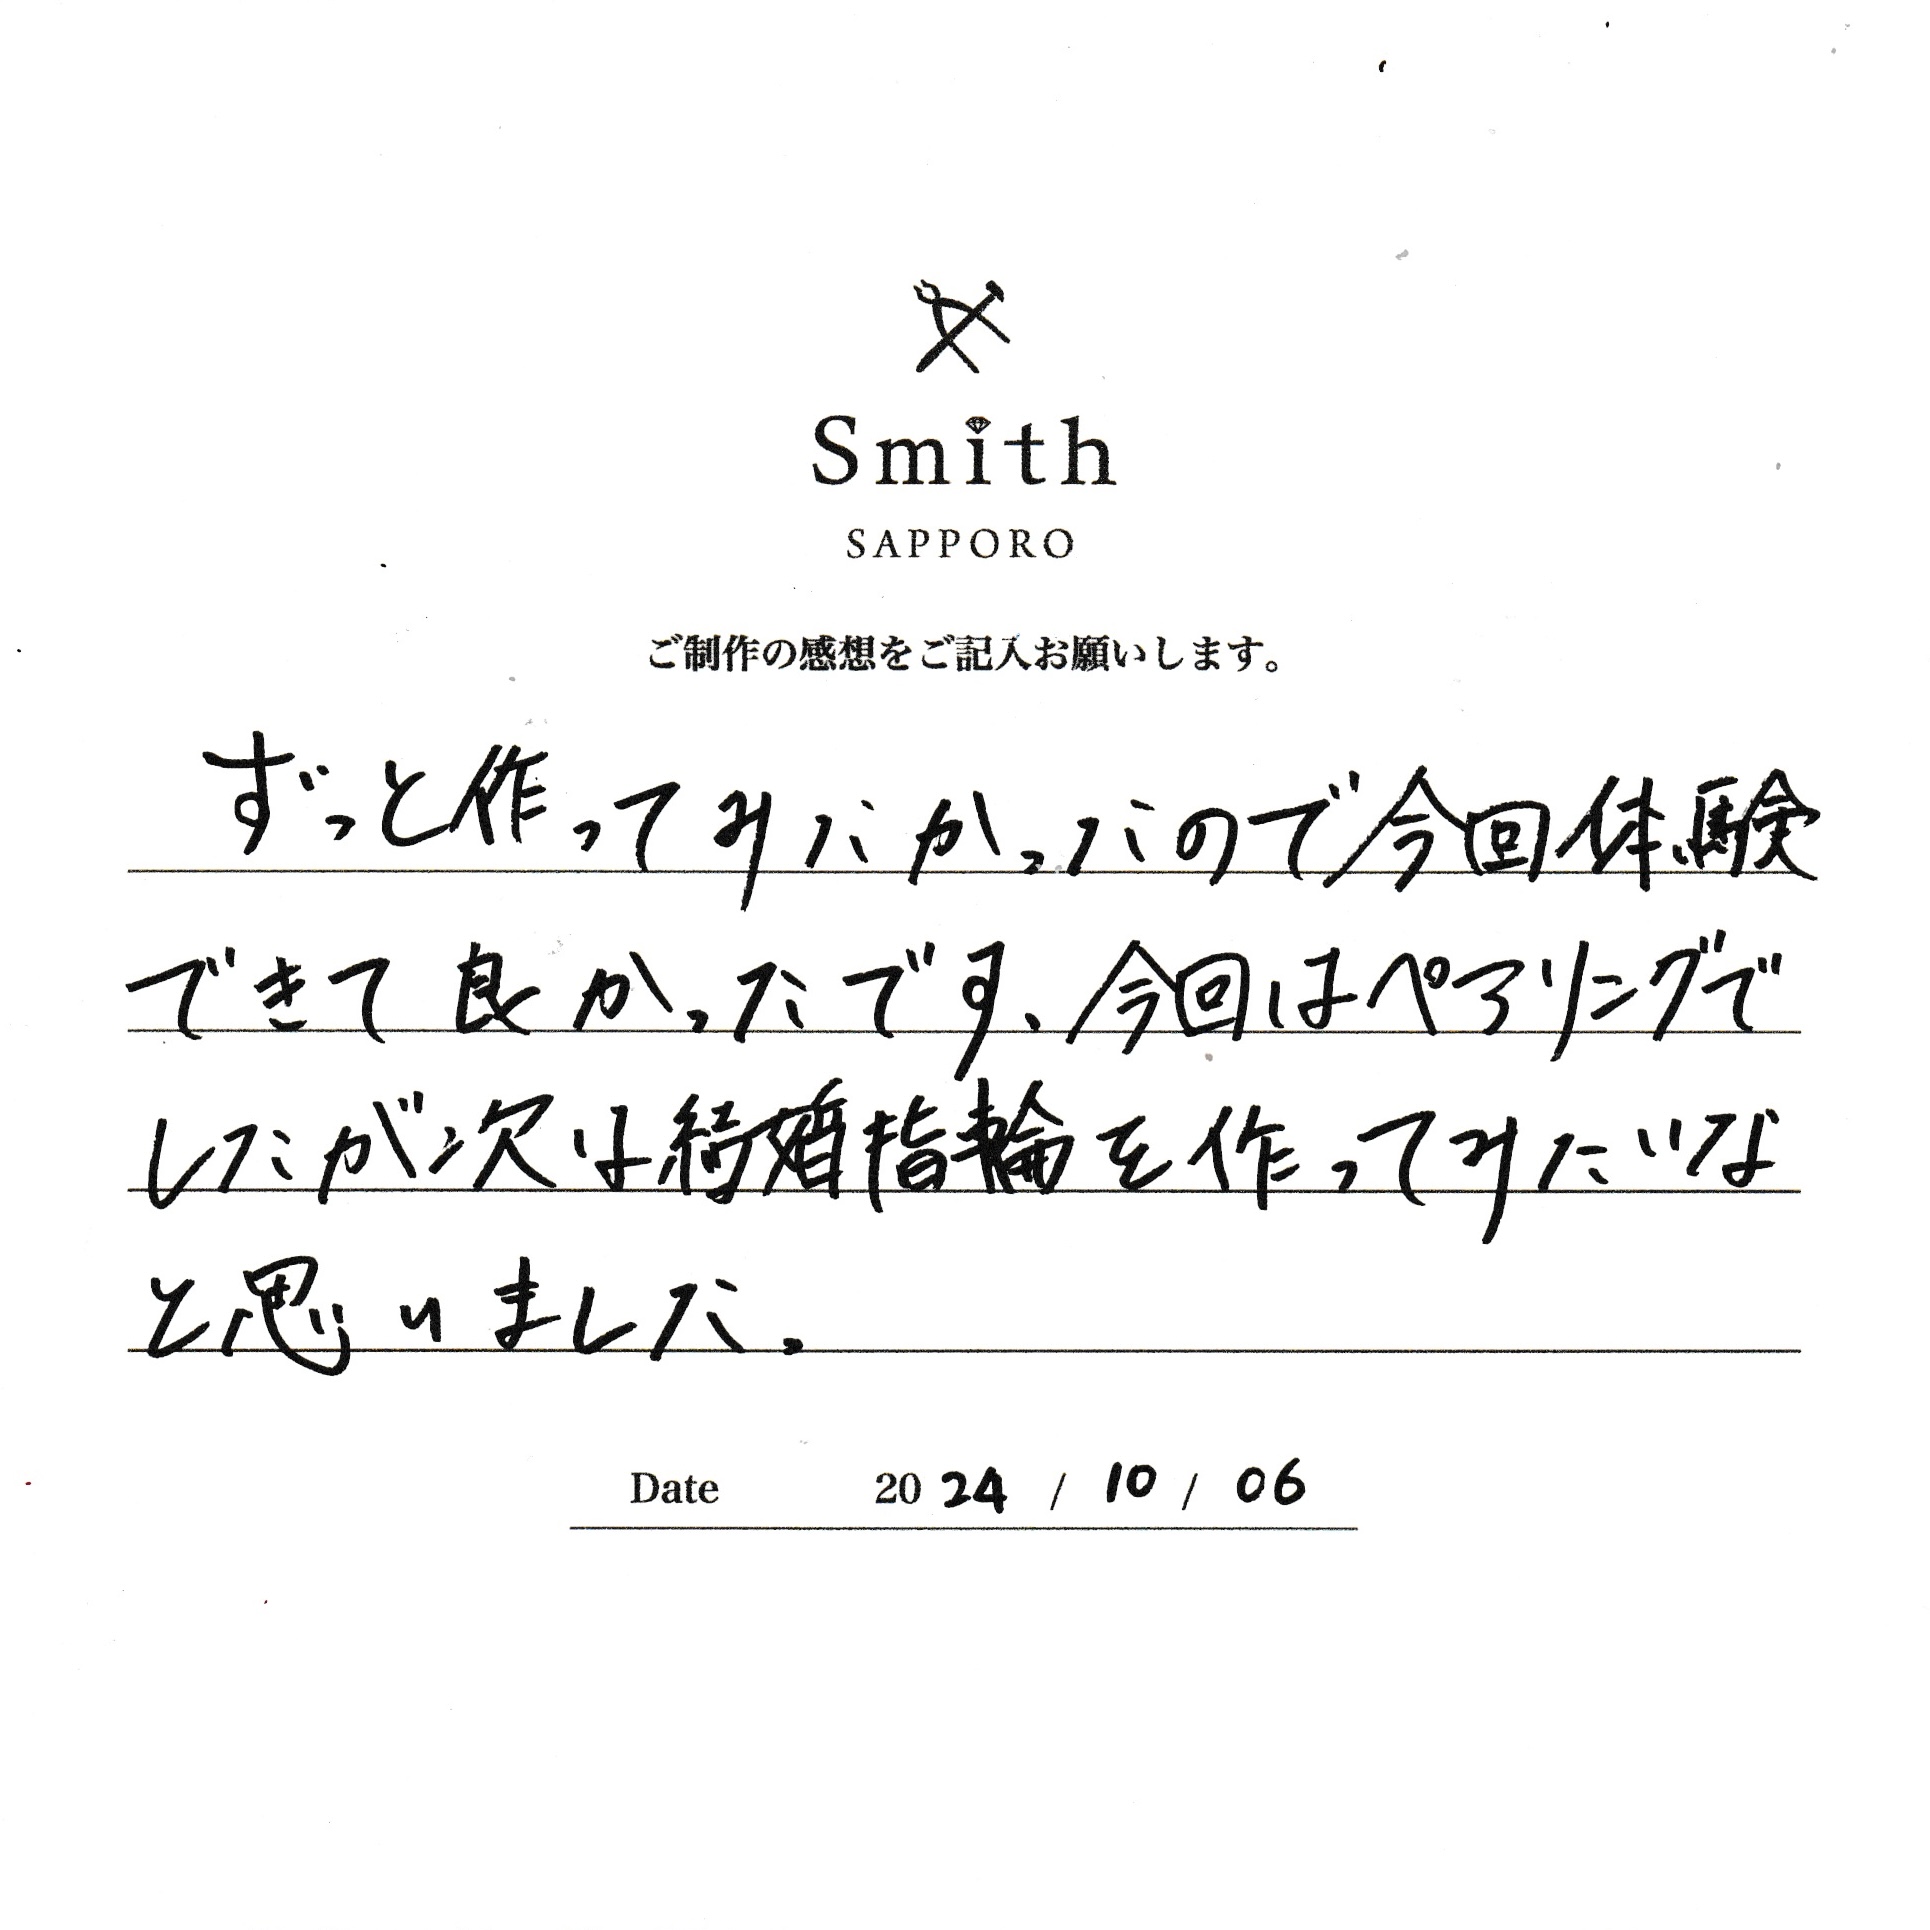 Smith
SAPPORO
ご制作の感想をご記入お願いします。
ずっと作ってみたかったので今回体験
できて良かったです、今回はペアリングで
したが次は結婚指輪を作ってみたいな
と思いました。
Date 2024 / 10 / 06